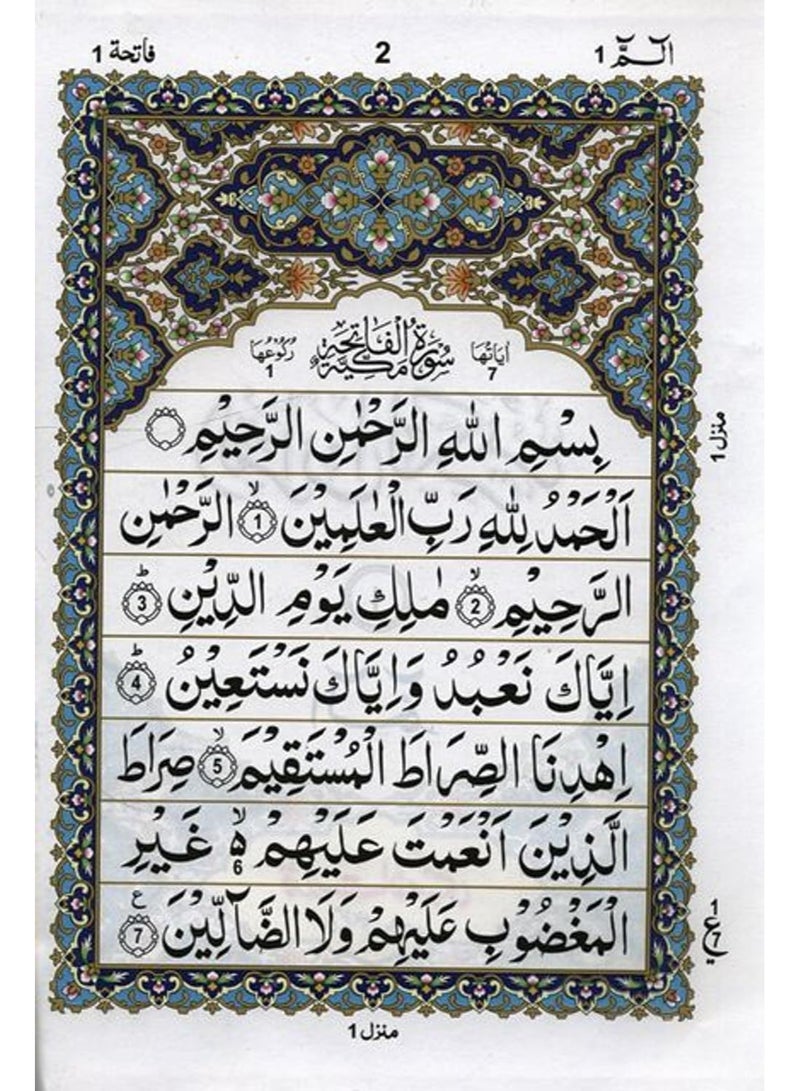 الٓـمّٓ 1 2 فاتحة 1
اٰیَاتُهَا 7 سُوْرَةُ الْفَاتِحَةِ مَكِّيَّةٌ رُكُوْعُهَا 1
بِسْمِ اللّٰهِ الرَّحْمٰنِ الرَّحِيْمِ
اَلْحَمْدُ لِلّٰهِ رَبِّ الْعٰلَمِيْنَ ۙ 1 الرَّحْمٰنِ
الرَّحِيْمِ ۙ 2 مٰلِكِ يَوْمِ الدِّيْنِ ؕ 3
اِيَّاكَ نَعْبُدُ وَاِيَّاكَ نَسْتَعِيْنُ ؕ 4
اِهْدِنَا الصِّرَاطَ الْمُسْتَقِيْمَ ۙ 5 صِرَاطَ
الَّذِيْنَ اَنْعَمْتَ عَلَيْهِمْ ۙ ه 6 غَيْرِ
الْمَغْضُوْبِ عَلَيْهِمْ وَلَا الضَّآلِّيْنَ ع 7
منزل 1
1 ع 7
منزل 1